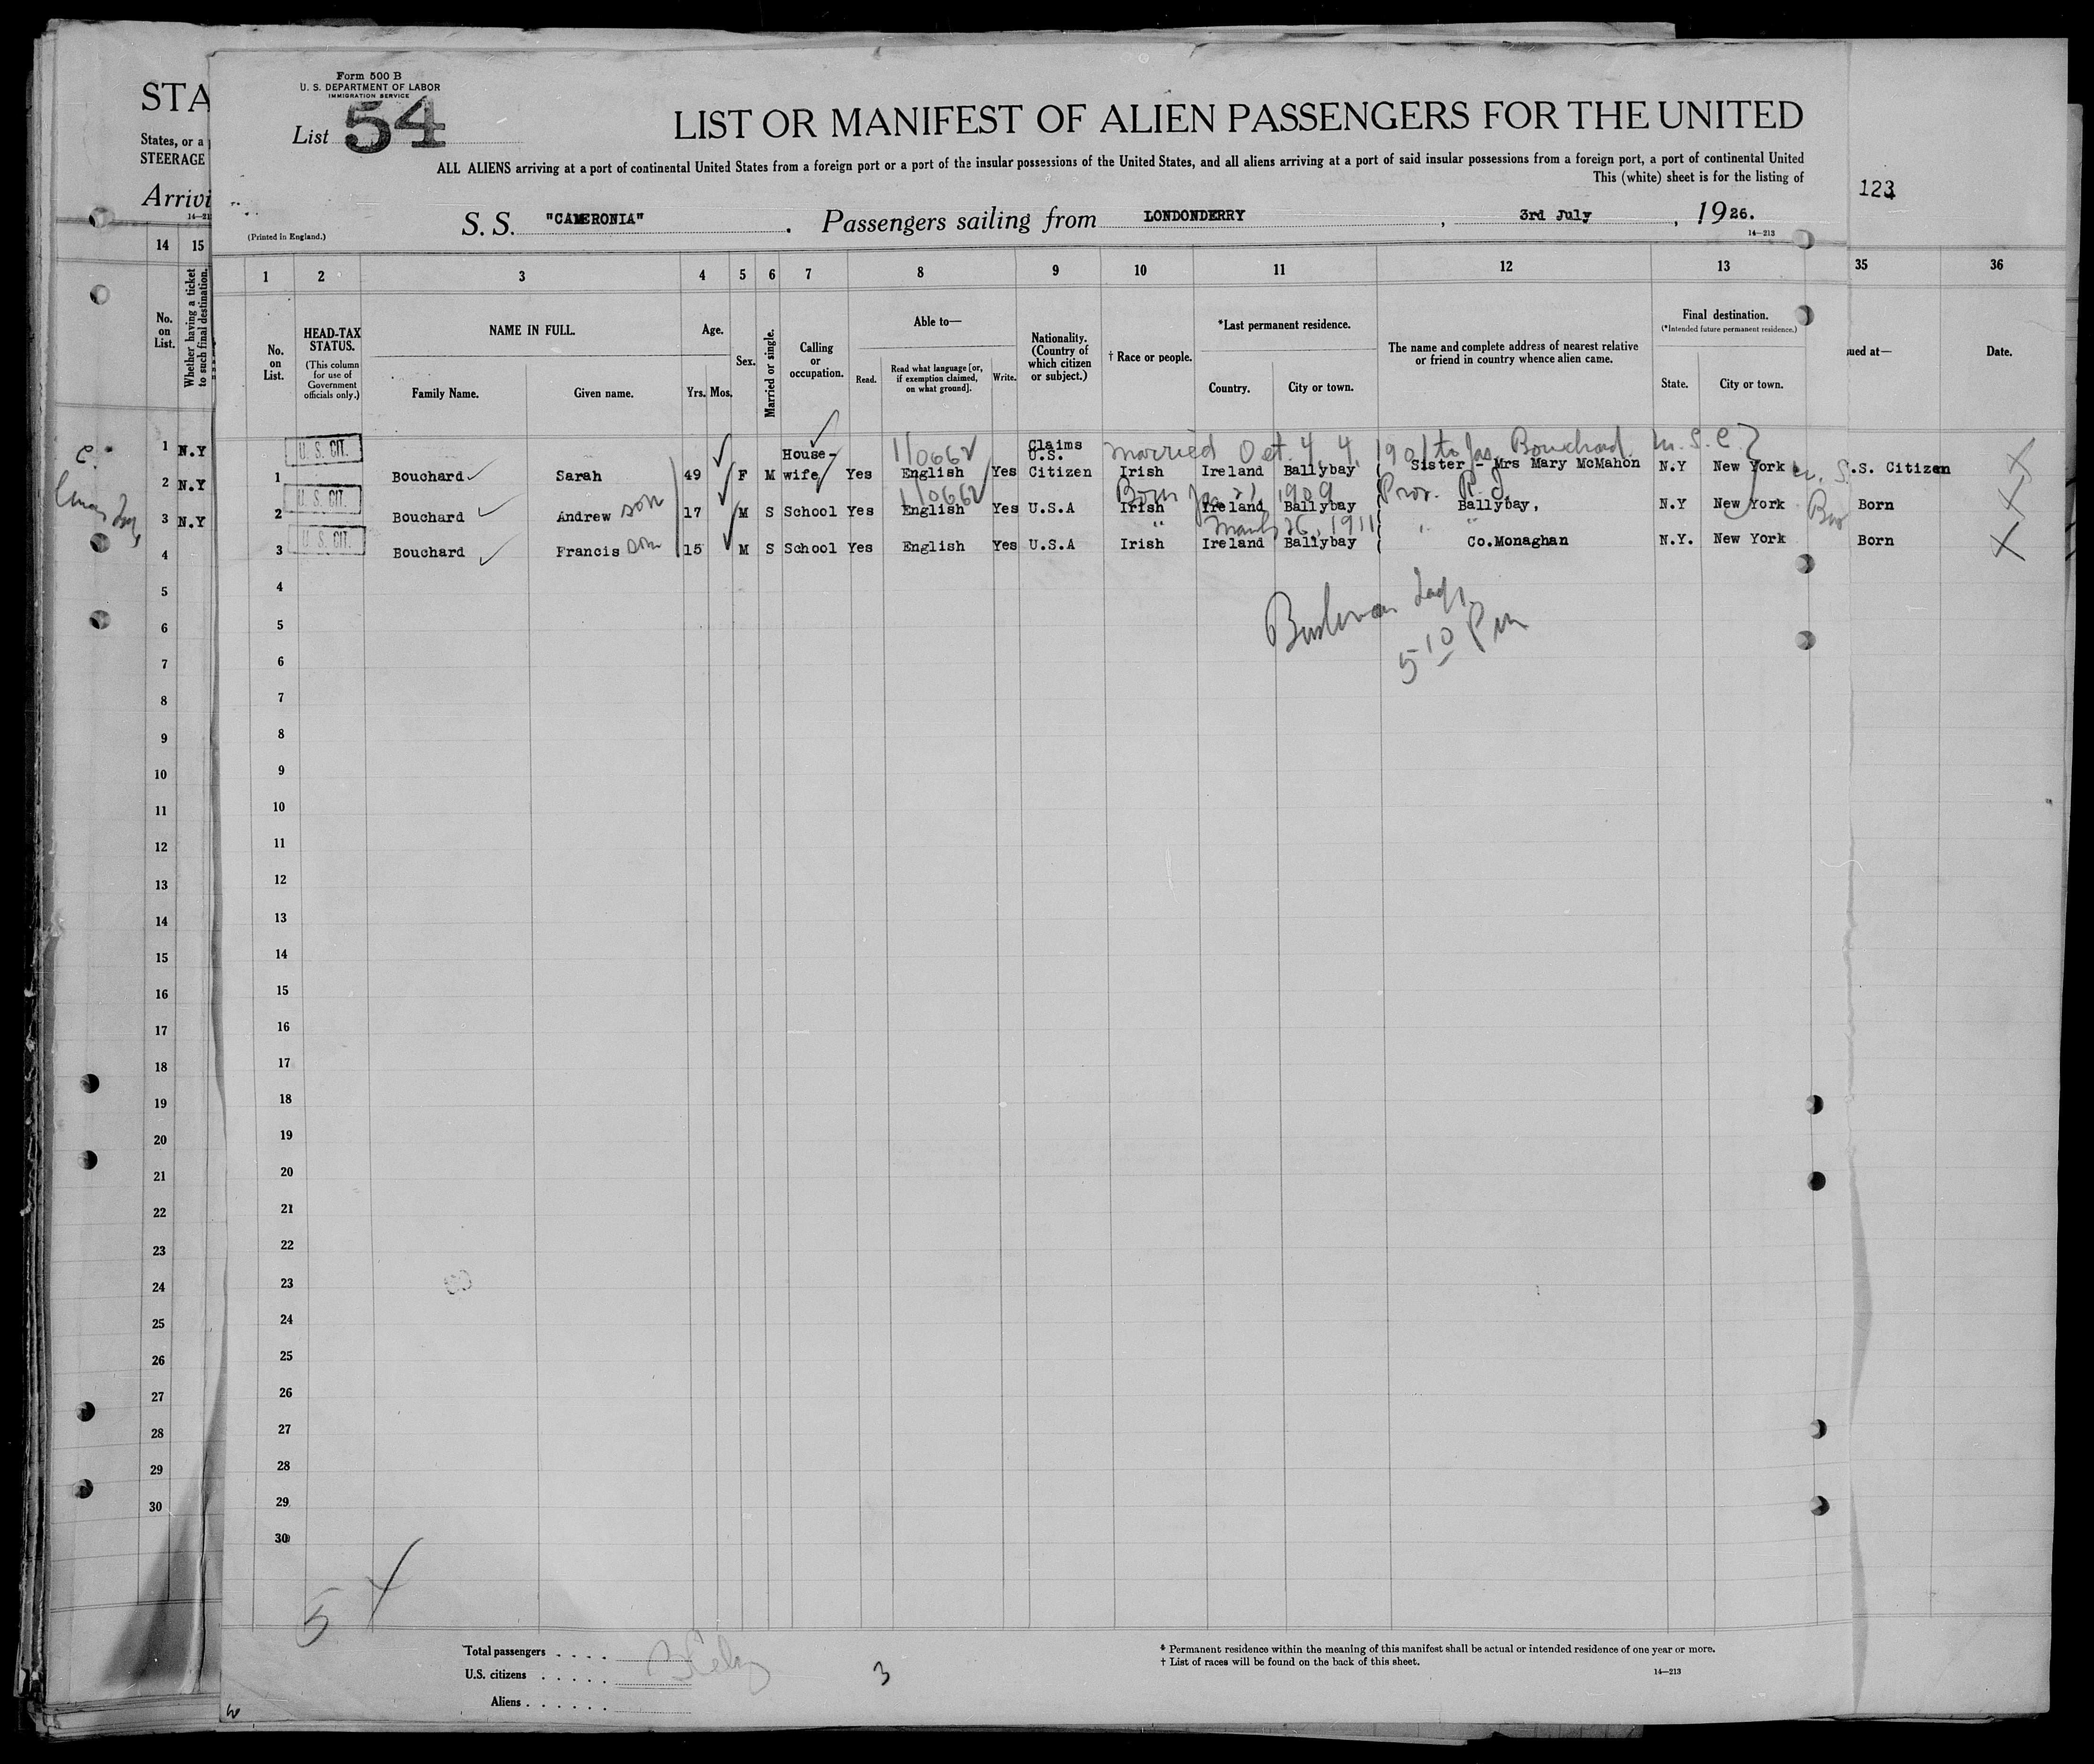 STA
States, or a
STEERAGE
Arrivi
Form 500 B
U. S. DEPARTMENT OF LABOR
IMMIGRATION SERVICE
List 54
LIST OR MANIFEST OF ALIEN PASSENGERS FOR THE UNITED
ALL ALIENS arriving at a port of continental United States from a foreign port or a port of the insular possessions of the United States, and all aliens arriving at a port of said insular possessions from a foreign port, a port of continental United
This (white) sheet is for the listing of
123
S. S. "CAMERONIA". Passengers sailing from LONDONDERRY, 3rd July, 1926.
(Printed in England.)
14—213
14 15 1 2 3 4 5 6 7 8 9 10 11 12 13 35 36
No. on List.
Whether having a ticket to such final destination.
No. on List.
HEAD-TAX STATUS.
(This column for use of Government officials only.)
NAME IN FULL.
Family Name. Given name.
Age.
Yrs. Mos.
Sex.
Married or single.
Calling or occupation.
Able to—
Read. Read what language [or, if exemption claimed, on what ground]. Write.
Nationality. (Country of which citizen or subject.)
† Race or people.
*Last permanent residence.
Country. City or town.
The name and complete address of nearest relative or friend in country whence alien came.
Final destination.
(*Intended future permanent residence.)
State. City or town.
ued at—
Date.
1 N.Y
2 N.Y
3 N.Y
U. S. CIT. House- 110662 Claims U.S. married Oct. 4, 1901 to Jas. Bouchard
1 Bouchard Sarah 49 F M wife Yes English Yes Citizen Irish Ireland Ballybay Sister - Mrs Mary McMahon N.Y New York .S. Citizen
U. S. CIT. 110662 Born Jan 21, 1909 Prov. R. I.
2 Bouchard Andrew son 17 M S School Yes English Yes U.S.A Irish Ireland Ballybay Ballybay, N.Y New York Born
U. S. CIT. " March 26, 1911 " "
3 Bouchard Francis son 15 M S School Yes English Yes U.S.A Irish Ireland Ballybay Co.Monaghan N.Y. New York Born
5 10 Pm
4 4
5 5
6 6
7 7
8 8
9 9
10 10
11 11
12 12
13 13
14 14
15 15
16 16
17 17
18 18
19 19
20 20
21 21
22 22
23 23
24 24
25 25
26 26
27 27
28 28
29 29
30 30
5
Total passengers . . . .
U.S. citizens . . . . .
Aliens . . . . . .
3
* Permanent residence within the meaning of this manifest shall be actual or intended residence of one year or more.
† List of races will be found on the back of this sheet.
14—213